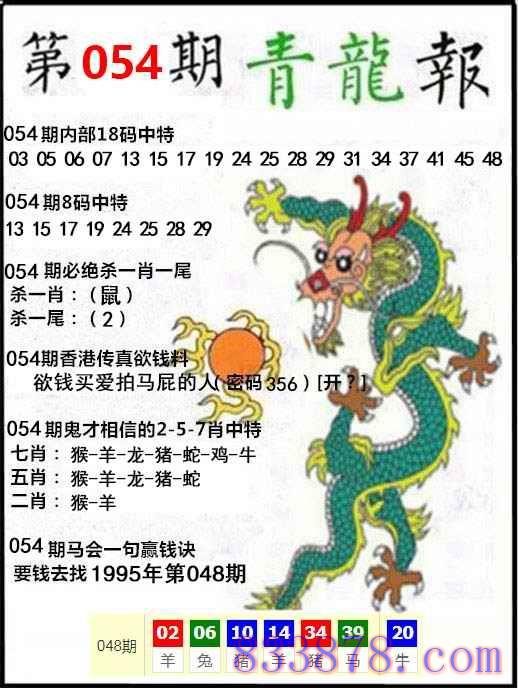 第054期青龍報
054期内部18码中特
03 05 06 07 13 15 17 19 24 25 28 29 31 34 37 41 45 48
054期8码中特
13 15 17 19 24 25 28 29
054 期必绝杀一肖一尾
杀一肖：（鼠）
杀一尾：（2）
054期香港传真欲钱料
欲钱买爱拍马屁的人（密码356）[开？]
054期鬼才相信的2-5-7肖中特
七肖：猴-羊-龙-猪-蛇-鸡-牛
五肖：猴-羊-龙-猪-蛇
二肖：猴-羊
054期马会一句赢钱诀
要钱去找1995年第048期
048期 02 06 10 14 34 39 20
羊 兔 猪 羊 猪 马 牛
833878.com